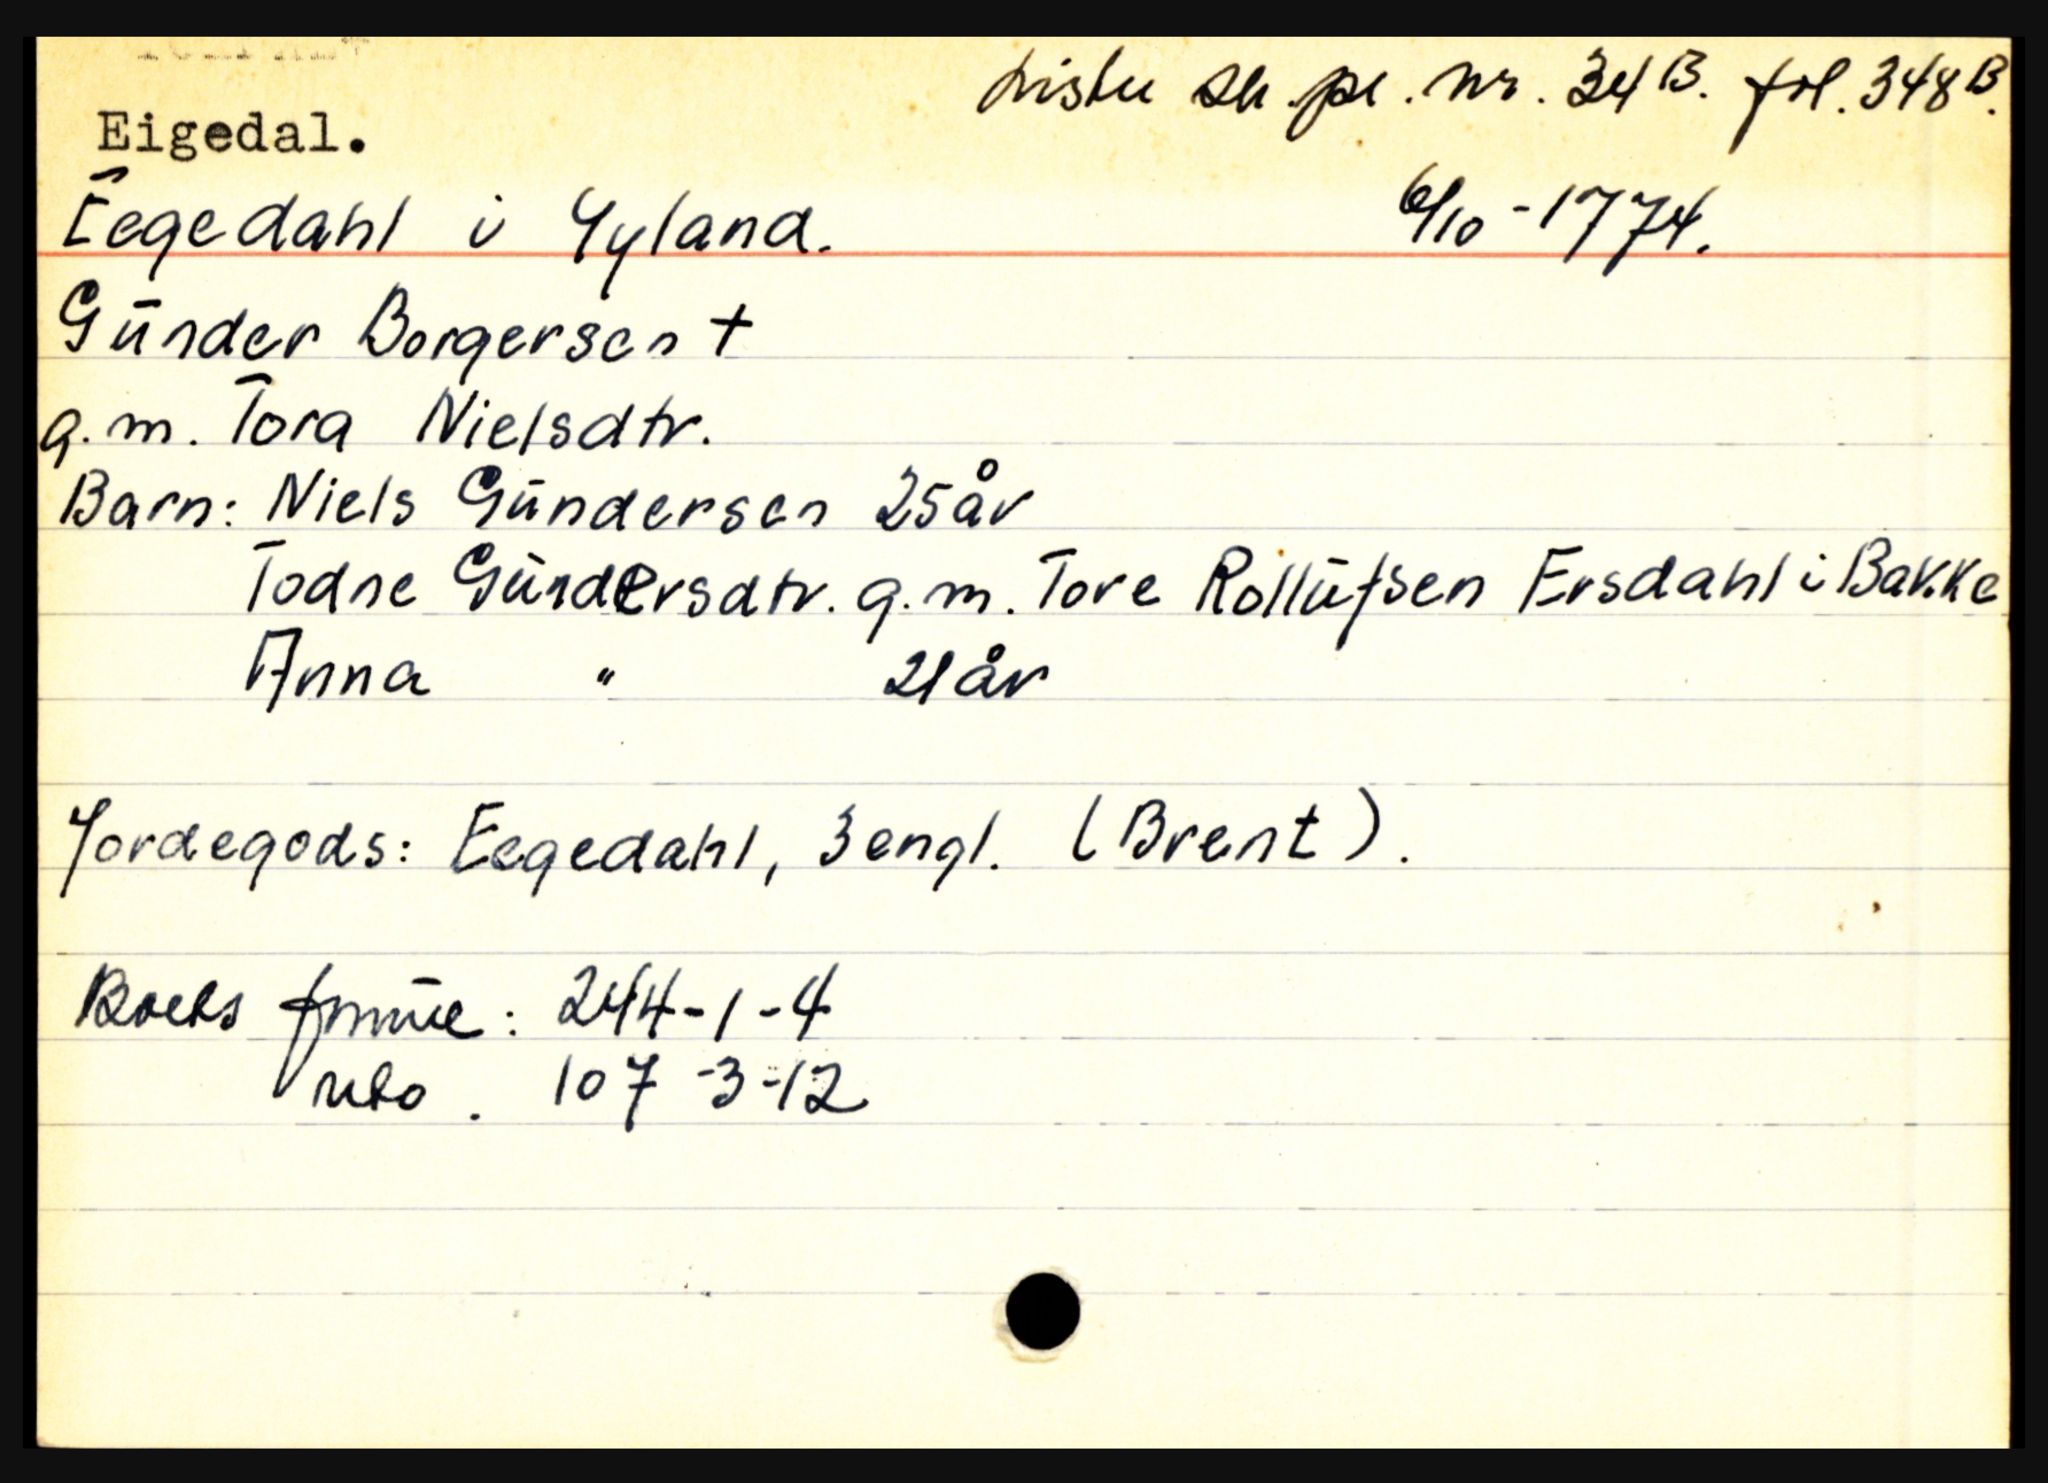 Lister sk. pr. nr. 34 B. fol. 348 B.
Eigedal.
Eegedahl i Gyland. 6/10 - 1774.
Gūnder Borgersen †
g. m. Tora Nielsdtr.
Barn: Niels Gūndersen 25 år
Todne Gūndersdtr. g. m. Tore Rollūfsen Ersdahl i Bakke
Anna " 21 år
Jordegods: Eegedahl, 3 engl. (Brent).
Boets formūe: 244-1-4
neto. 107-3-12